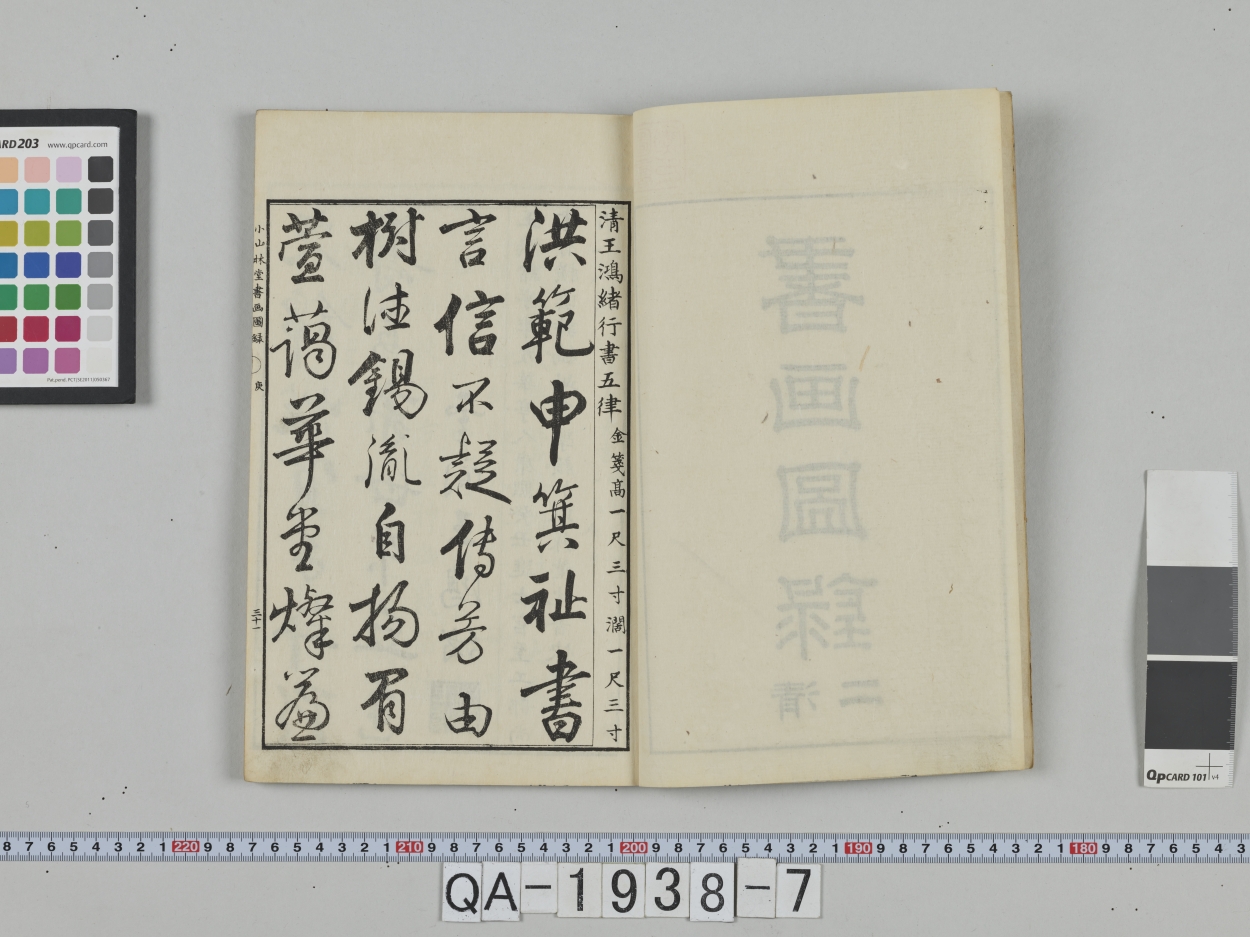 書画圖録
二清
清王鴻緒行書五律 金箋高一尺三寸濶一尺三寸
洪範申箕祉書
言信不疑傳芳由
樹德錫胤自揚眉
萱藹華堂燦
小山林堂書画圖録 庚 三十一
CARD 203 www.qpcard.com
QpCARD 101 v4
8 7 6 5 4 3 2 1 220 9 8 7 6 5 4 3 2 1 210 9 8 7 6 5 4 3 2 1 200 9 8 7 6 5 4 3 2 1 190 9 8 7 6 5 4 3 2 1 180 9 8 7 6 5 4 3
QA-1938-7